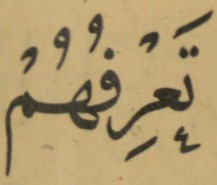 تَعْرِفُهُمْ